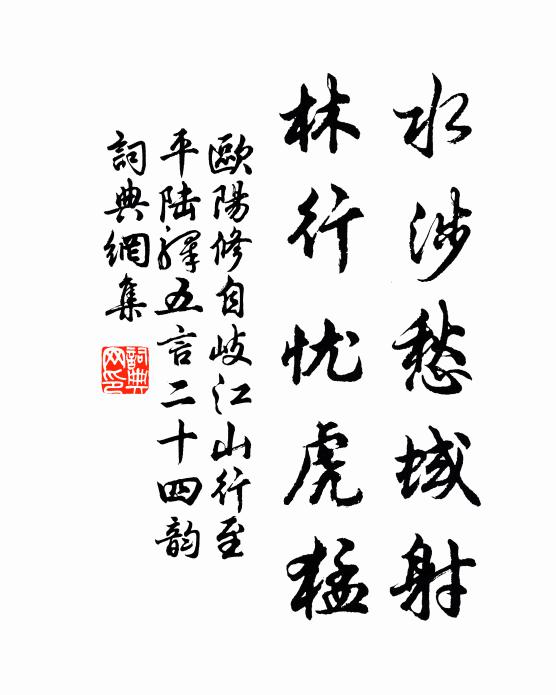 水涉愁域射
林行忧虎猛
歐陽修自岐江山行至
平陆驛五言二十四韵
詞典網集
詞典网印